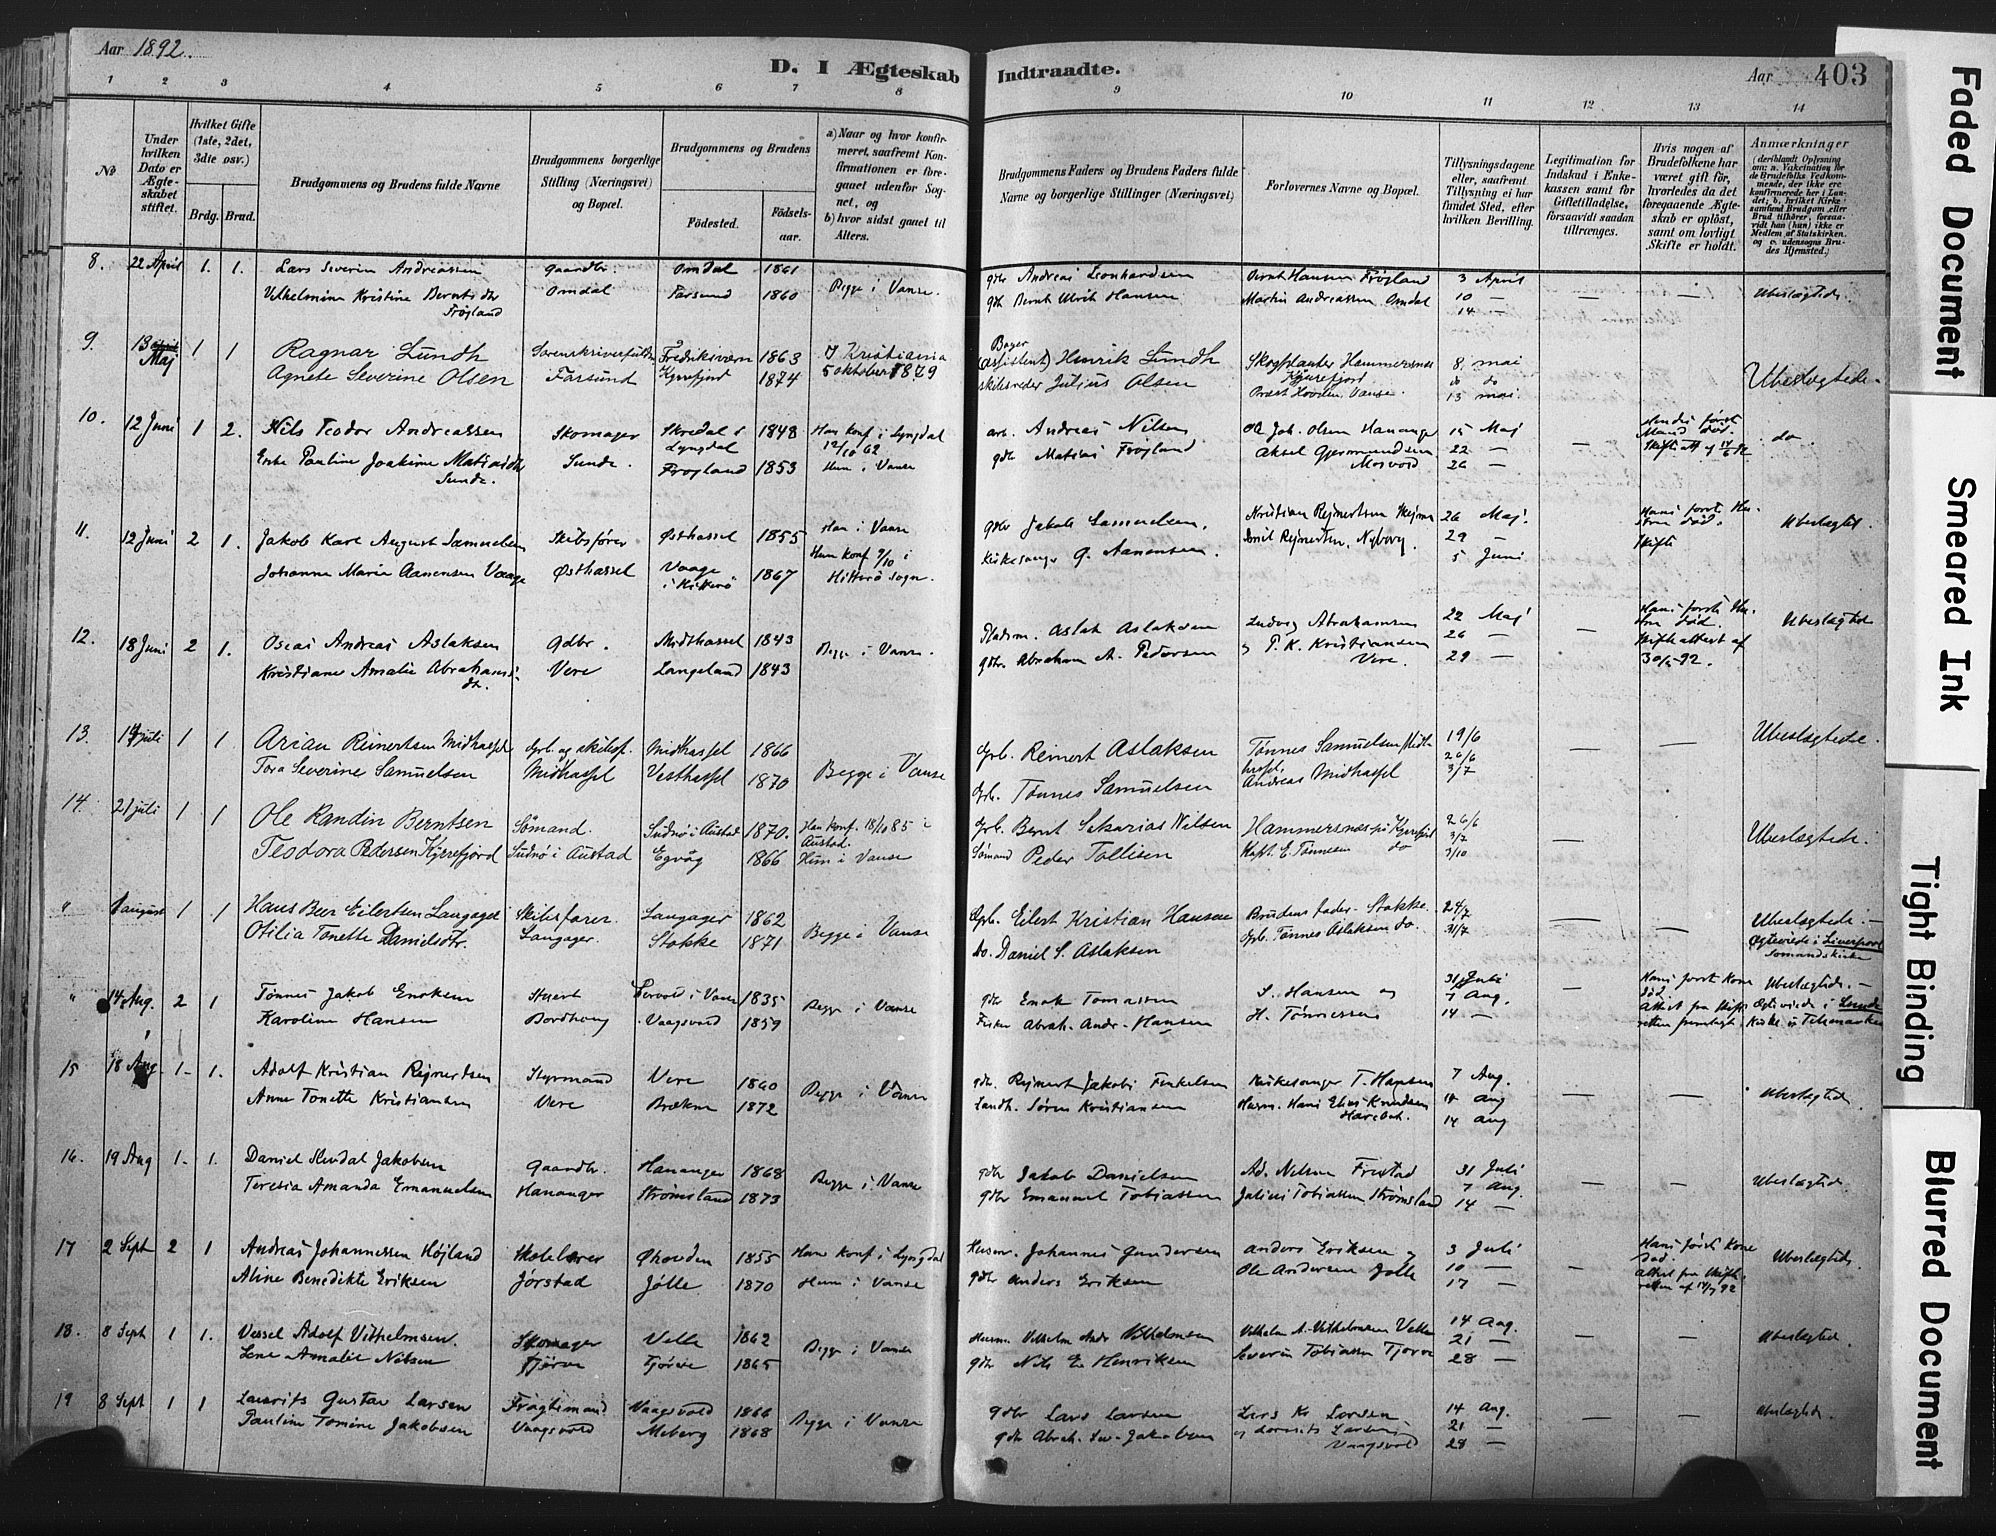 Aar 1892.
D. I Ægteskab Indtraadte.
Aar 403
1 2 3 4 5 6 7 8 9 10 11 12 13 14
No
Under hvilken Dato er Ægteskabet stiftet.
Hvilket Gifte (1ste, 2det, 3dte osv.)
Brdg. Brud.
Brudgommens og Brudens fulde Navne
Brudgommens borgerlige Stilling (Næringsvei) og Bopæl.
Brudgommens og Brudens
Fødested. Fødselsaar.
a) Naar og hvor konfirmeret, saafremt Konfirmationen er foregaaet udenfor Sognet, og b) hvor sidst gaaet til Alters.
Brudgommens Faders og Brudens Faders fulde Navne og borgerlige Stillinger (Næringsvei)
Forlovernes Navne og Bopæl.
Tillysningsdagene eller, saafremt Tillysning ei har fundet Sted, efter hvilken Bevilling.
Legitimation for Indskud i Enkekassen samt for Giftetilladelse, forsaavidt saadan tiltrænges.
Hvis nogen af Brudefolkene har været gift før, hvorledes da det foregaaende Ægteskab er opløst, samt om lovligt Skifte er holdt.
Anmærkninger (deriblandt Oplysning om: a. Vakcination for de Brudefolks Vedkommende, der ikke ere konfirmerede her i Landet; b. hvilket Kirkesamfund Brudgom eller Brud tilhører, forsaavidt han (hun) ikke er Medlem af Statskirken, og c. udensogns Brudes Hjemsted.)
8. 22 April 1. 1. Lars Severin Andreassen Gaardbr. Omdal 1861 Begge i Vanse. gdr Andreas Leonhardsen Bernt Hansen Frøjland 3 April
Vilhelmine Kristine Bernts dtr Omdal Farsund 1860 gdr Bernt Ulrik Hansen Martin Andreassen Omdal 10 — — — Ubeslægtede
Frøjland 14 —
9. 13 Maj 1 1 Ragnar Lundh Sorenskriverfuldm Fredriksværn 1863 I Kristiania Bager (assistent) Henrik Lundh Skogplanter Hammersnes 8 mai
Agnete Severine Olsen Farsund Kjørrefjord 1874 5 oktober 1879 skibsreder Julius Olsen Kjørrefjord do do Ubeslægtede.
Præst Hovden, Vanse. 13 mai.
10. 12 Juni 1 2. Nils Teodor Andreassen Skomager Skredal i Lyngdal 1848 Han konf i Lyngdal 12/10 62 arb. Andreas Nilsen Ol Joh. Olsen Hananger 15 Maj Hendes første Mand død.
Enke Pauline Joakime Matiasdtr Sunde. Frøjland 1853 Hun i Vanse gdr Matias Frøjland Aksel Gjermundsen 22 — — do.
Sunde. Mosvold 26 —
11. 12 Juni 2 1. Jakob Karl August Samuelsen Skibsfører Østhassel 1855 Han i Vanse gdr Jakob Samuelsen. Kristian Rejnertsen 26 Maj. Hans første Hustru død. Ubeslægtet.
Johanne Marie Aanensen Vaage Østhassel Vaage i Hitterø 1867 Hun konf 9/10 i Hitterø sogn. Kirkesanger G. Aanensen. Emil Rejnertsen, Nyborg. 29 — Skifte
5 Juni
12. 18 Juni 2 1. Oseas Andreas Aslaksen Gdbr. Midthassel 1843 Begge i Vanse. Aslak Aslaksen Ludvig Abrahamsen 22 Maj Hans første Hustru død. Ubeslægtede
Kristiane Amalie Abrahamsdtr. Vere Langeland 1843 gdbr. Abraham A. Pedersen og T. K. Kristiansen 26 — — Skifteattest af
Vere. 29 — 30/5-92.
13. 14 juli 1 1 Arian Reinertsen Midhassel Grb. og skibsf. Midhassel 1866 Begge i Vanse Grb. Reinert Aslaksen Tønnes Samuelsen Midhassel 19/6 — — Ubeslægtede.
Tora Severine Samuelsen Midhassel Vesthassel 1870 Grb. Tønnes Samuelsen Andreas Midhassel 26/6 3/7
14. 21 juli 1 1 Ole Randin Berntsen Sømand. Sudnø i Austad 1870. Han konf. 18/10 85 i Austad. Grb. Bernt Sakarias Nilsen Hammersnes på Kjørrefjord 26/6 3/7 Ubeslægtede.
Teodora Pedersen Kjørrefjord Sudnø i Austad Egvåg 1866 Hun i Vanse Sømand Peder Tollisen Kapt. E. Tønnesen do 3/10 —
" august 1 1 Hans Beer Eilertsen Langager Skibsfører. Langager 1862 Begge i Vanse Grb. Eilert Kristian Hansen Brudens fader - Stokke. 24/7 — — Ubeslægtede. —
Otilia Tonette Danielsdtr. Langager. Stokke 1871 do. Daniel S. Aslaksen Grb. Tønnes Aslaksen do. 31/7 Ægteviede i Liverpool Sømandskirke
" 14 Aug. 2 1 Tønnes Jakob Enoksen 1835 Begge i Vanse gdr Enok Tomassen S. Hansen og 31 Juli Hans første Kone død. Ubeslægtede. —
Karoline Hansen Vaagsvold 1859 Fisker Abrah. Andr. Hansen H. Tønnessen 7 Aug. — Attest fra Skifteretten fremlagt Ægteviede i Lunde
14 — Kirke i Telemarken
15 18 Aug. 1- 1. Adolf Kristian Rejnertsen Styrmand Vere 1860 Begge i Vanse gdr. Rejnert Jakobs Kirkesanger T. Hansen 7 Aug.
Anne Tonette Kristiansen Vere Brækne 1872 Landh. Søren Kristiansen Husm. Hans Elias Knudsen 14 aug — — Ubeslægtede.
14 aug
16. 19 Aug 1- 1. Daniel Jakobsen Gaardbr. Hananger 1868 Begge i Vanse gdr Jakob Danielsen Ad. Nilsen Frestad 31 Juli
Teresia Amanda Emanuelsen Hananger Strømsland 1873 gdr Emanuel Tobiassen Julius Tobiassen Strømsland 7 Aug. — — Ubeslægtede.
14 —
17 2 Sept 2 1 Andreas Johannessen Højland Skolelærer 1855 Han konf i Lyngdal Husm. Johannes Gundersen Anders Eriksen og 3 Juli Hans første Kone død. Ubeslægtede.
Aline Benedikte Eriksen Jørstad Jølle 1870 Hun i Vanse gdr Anders Eriksen Ole Andersen Jølle 10 — — Attest fra Skifteretten
17 —
18. 8 Sept 1 1. Vessel Adolf Vilhelmsen. Skomager Velle 1862 Begge i Vanse Husm. Vilhelm Andr Vilhelmsen Vilhelm A. Vilhelmsen Velle 14 Aug.
Lene Amalie Nilsen Tjørve Tjørve 1865 gdr Nils E. Henriksen Severin Tobiassen Tjørve 21 — — — Ubeslægtede
28 —
19 8 Sept 1 1 Laurits Gustav Larsen Fragtemand Vaagsvold 1866 Begge i Vanse gdr Lars Larsen Lars Kr Larsen 14 Aug. Ubeslægtede.
Pauline Tomine Jakobsen Vaagsvold Meberg 1868 gdr Abrah. Sev. Jakobsen og Laurits Larsen 21 — — —
Vaagsvold 28 —
Faded Document
Smeared Ink
Tight Binding
Blurred Document